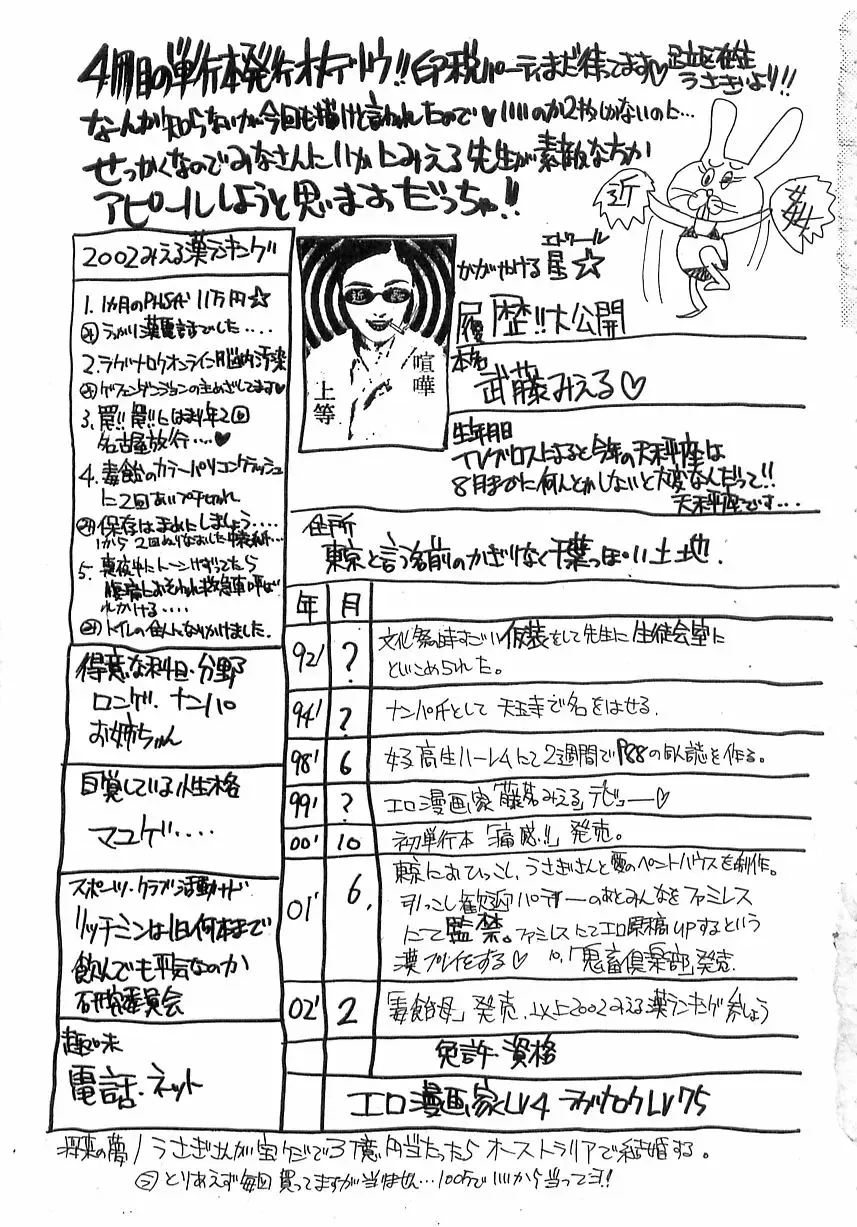 4冊目の単行本発行オメデトウ!!印税パーティまだ待ってます♡足立区在住
うさぎより!!
なーんか知らないが今回も描けと言われたので♡いいのか2枚しかないのに…
せっかくなのでみなさんにいかにみえる先生が素敵な方か
アピールしようと思いますだっちゃ!!
近
2002みえる薬ランキング
1. 1カ月のPHS代 11万円☆
うっかり薬電話でした....
2.ラグナロクオンライン脳内汚染
ゲフェンダンジョンの主めざしてます♡
3. 買!! 買!!とはま年2回
名古屋旅行...♡
4. 毒飴のカラーパソコンクラッシュ
に2回あいブチきれ
保存はまめにしましょう....
1から2回ぬりなおした
5. 真夜中にトーンけずってたら
腹痛におそわれ救急車呼ば
れかける....
トイレの住人になりかけました.
喧嘩
上等
エトワール
かがやける星☆
履歴!!大公開
本名
武藤みえる♡
生年月日
TVブロスによると今年の天秤座は
8月までに何とかしないと大変なんだって!!
天秤座です...
住所
東京と言う名前のかぎりなく千葉っぽい土地.
年 月
92' ? 文化祭の時すごい仮装をして先生に生徒会室に
とじこめられた。
94' ? ナンパ氏として天王寺で名をはせる.
98' 6 女子高生ハーレムにて2週間でP88の同人誌を作る。
99' ? エロ漫画家「藤若みえる」デビュー♡
00' 10 初単行本「痛感!!」発売。
01' 6. 東京におひっこし、うさぎさんと愛のペントハウスを制作。
引っこし歓迎パーティーのあとみんなをファミレス
にて監禁。ファミレスにてエロ原稿UPするという
漢プレイをする♡ 10.「鬼畜倶楽部」発売.
02' 2 「毒飴母」発売.以上2002みえる薬ランキング参しょう
免許・資格
エロ漫画家LV4 ラグナロクLV75
得意な科目・分野
ロンゲ.ナンパ
お姉ちゃん
自覚している性格
マユゲ....
スポーツ・クラブ活動など
リッチミンは1日何本まで
飲んでも平気なのか
研究委員会
趣味
電話・ネット
将来の夢/うさぎさんが宝クジで3億円当たったらオーストラリアで結婚する。
とりあえず毎回買ってますが当りません…100万でいいから当ってヨ!!